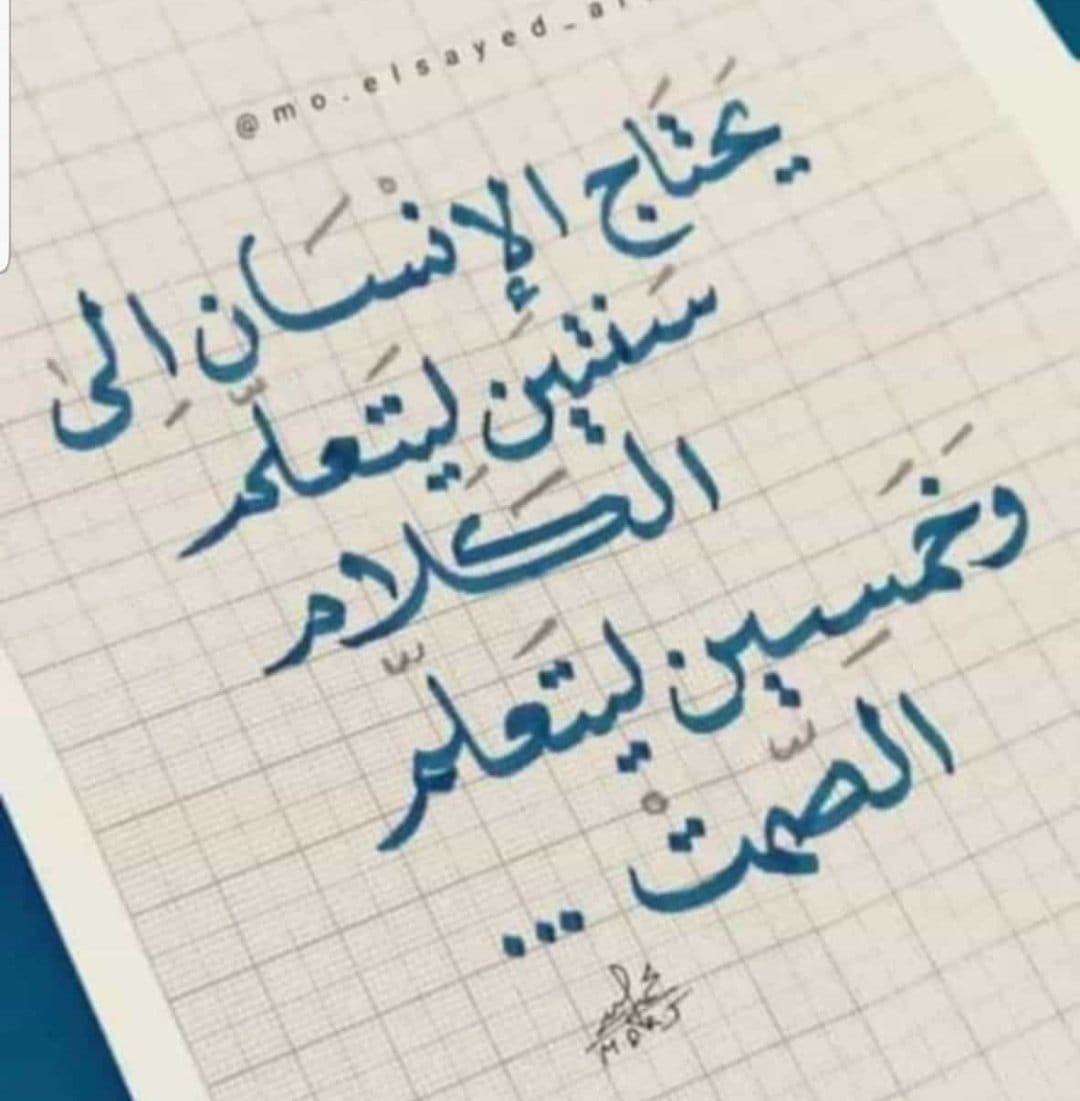 @mo.elsayed_a
يَحتَاج الإِنْسَان إِلىٰ
سَنتينِ ليتَعلّم
الكَلَام
وَخَمسِين ليتَعلّم
الصّمتْ ...